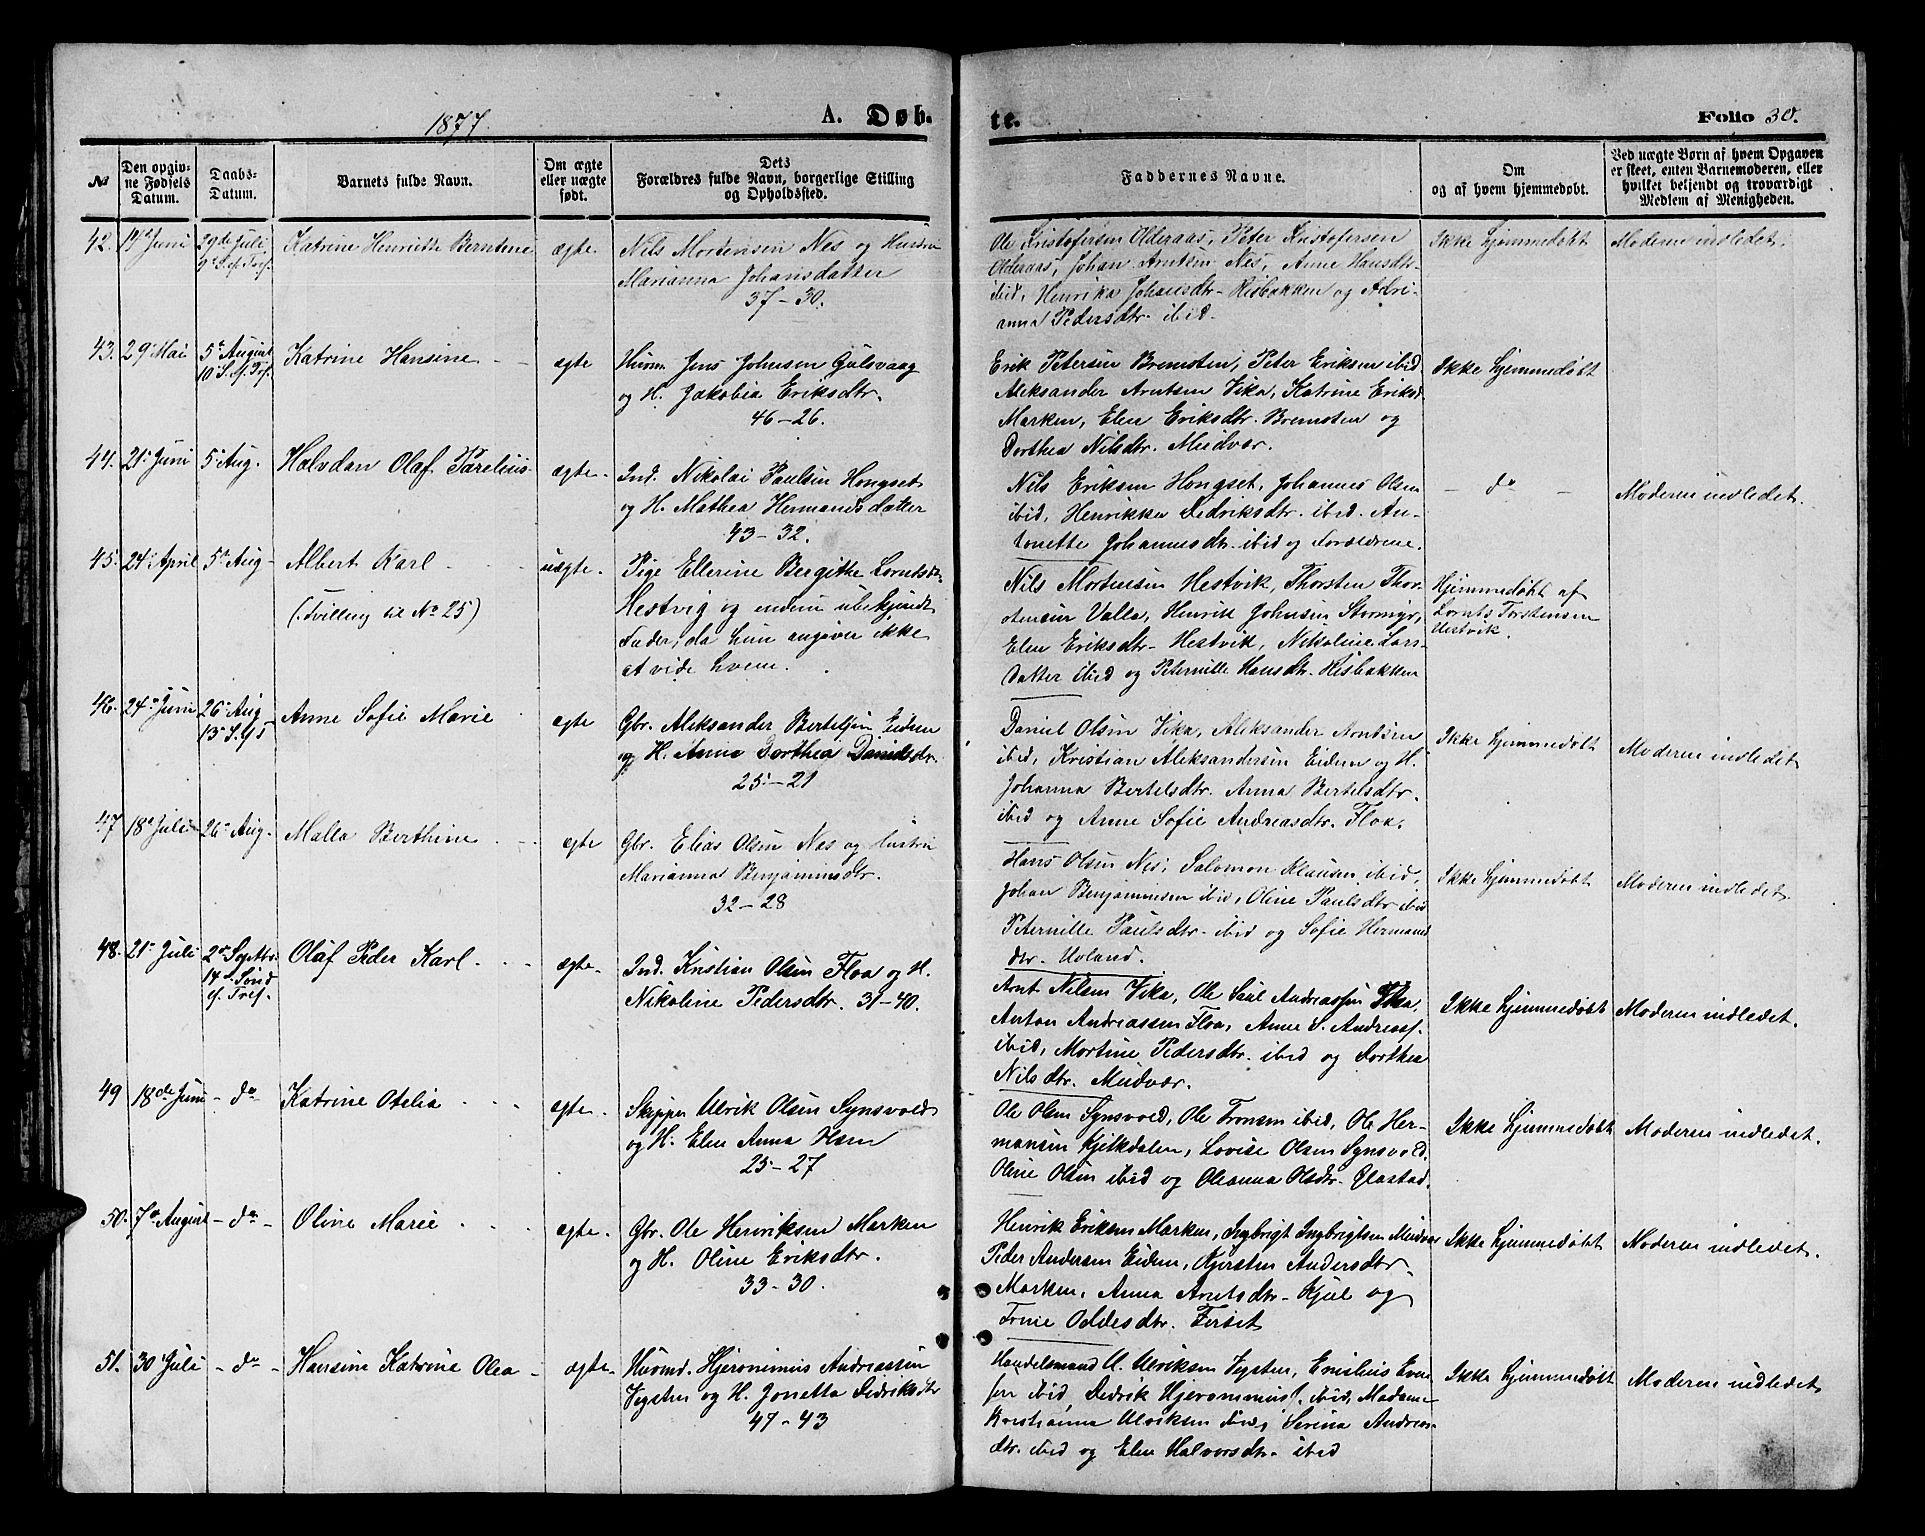 1877.
A. Døb-
te.
Folio 30.
№
Den opgiv-
ne Fødsels
Datum.
Daabs-
Datum.
Barnets fulde Navn.
Om ægte
eller uægte
født.
Dets
Forældres fulde Navn, borgerlige Stilling
og Opholdssted.
Faddernes Navne.
Om
og af hvem hjemmedøbt.
Ved uægte Børn af hvem Opgaven
er skeet, enten Barnemoderen, eller
hvilket bekjendt og troværdigt
Medlem af Menigheden.
42. Juni 29de Juli Katrine Henriette Berntine ægte
9de S. ef. Tref.
Nils Mortensen Nes og Hustru
Marianna Johansdatter
37-30.
Ole Kristofersen Olderaas, Peter Kristofersen
Olderaas, Johan Arntsen Nes, Anne Hansdtr.
ibid, Henrika Johansdtr. Risbakken og Adri-
anna Pedersdtr. ibid.
Ikke hjemmedøbt
Moderen indledet.
43. 29de Mai 5te August Katrine Hansine - ægte
10 S. ef. Tref.
Husm. Jens Johnsen Gulsvaag
og H. Jakobia Eriksdtr.
46-26.
Erik Petersen Bremsten, Peter Eriksen ibid
Aleksander Arntsen Vika, Katrine Eriksd.
Marken, Elen Eriksdtr. Bremsten og
Dorthea Nilsdtr. Mudvær.
Ikke hjemmedøbt
44. 21de Juni 5te Aug. Halvdan Olaf Parelius ægte
Ind. Nikolai Paulsen Hongset
og H. Mathea Hermandsdatter
43-32.
Nils Eriksen Hongset, Johannes Olsen
ibid, Henrikka Didriksdtr. ibid. An-
tonette Johannesdtr. ibid og Forældrene.
- do -
Moderen indledet.
45. 24de April 5te Aug. Albert Karl uægte.
(Tvilling til No 25)
Pige Ellerine Bergitte Lorntsdtr.
Hestvig og endnu ubekjendt
Fader, da hun angiver ikke
at vide hvem.
Nils Mortensen Hestvik, Thorsten Thor-
stensen Valla, Henrik Johnsen Stormyr,
Elen Eriksdtr. Hestvik, Nikoline Lars-
datter ibid og Peternille Hansdtr. Risbakken
Hjemmedøbt af
Lornts Torstensen
Hestvik.
46. 24de Juni 26de Aug Anne Sofie Marie ægte
Gbr. Aleksander Bertelsen Eidem
og H. Anna Dorthea Danielsdr.
25-21
Daniel Olsen Vika, Aleksander Arntsen
ibid, Kristian Aleksandersen Eidem og H.
Johanna Bertelsdtr. Anna Bertelsdtr.
ibid og Anne Sofie Andreasdtr. Floa.
Ikke hjemmedøbt
Moderen indledet
47 18de Juli 26de Aug. Malla Berthine ægte
Gbr. Elias Olsen Nes og Hustru
Marianna Benjaminsdtr.
32-28
Hans Olsen Nes, Salomon Klausen ibid,
Johan Benjaminsen ibid, Oline Paulsdtr ibid
Peternille Paulsdtr ibid og Sofie Hermands
dtr. Uvland.
Ikke hjemmedøbt
Moderen indledet.
48. 21de Juli 2den Septbr. Olaf Peder Karl ægte.
14de Sønd
ef. Tref.
Ind. Kristian Olsen Floa og H.
Nikoline Pedersdtr. 31-40.
Arnt Nilsen Vika, Ole Paul Andreassen Vika,
Anton Andreassen Floa, Anne S. Andreasd.
ibid, Mortine Pedersdtr. ibid og Dorthea
Nilsdtr. Mudvær.
Ikke hjemmedøbt
Moderen indledet.
49 18de Juni - do - Katrine Otelia ægte.
Skipper Ulrik Olsen Synsvold
og H. Elen Anna Olsen
25-27
Ole Olsen Synsvold, Ole Tronsen ibid, Ole Her-
mansen Kjelkdalen, Lovise Olsen Synsvold.
Oline Olsen ibid og Oleanna Olsdtr. Glastad.
Ikke hjemmedøbt
Moderen indledet.
50. 7de August - do - Oline Marie ægte.
Gbr. Ole Henriksen Marken
og H. Oline Eriksdtr.
33-30.
Henrik Eriksen Marken, Ingbrigt Ingbrigtsen Mudvær
Peder Andersen Eidem, Kjersten Andersdtr.
Marken, Anna Arntsdtr. Kjul og
Trine Oddesdtr. Ferset
Ikke hjemmedøbt
Moderen indledet.
51. 30 Juli - do - Hansine Katrine Olea - ægte.
Husmd. Hjeronimus Andreassen
Vegsten og H. Jonetta Didriksdtr
47-43
Handelsmand U. Ulriksen Vegsten, Emilius Even-
sen ibid, Didrik Hjeronimus. ibid, Madame
Kristianna Ulriksen ibid, Serina Andreas-
dtr. ibid og Elen Halvorsdtr. ibid
Ikke hjemmedøbt
Moderen indledet